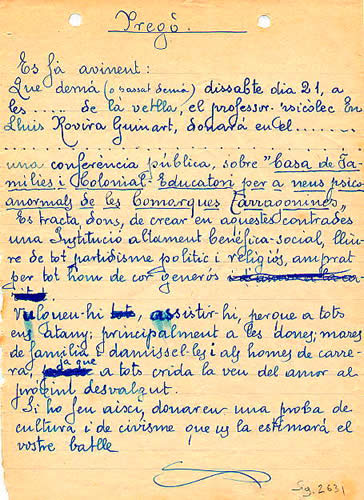 Pregó.
Es fà avinent:
Que demà (o passat demà) dissabte dia 21, a
les ...... de la vetlla, el professor-psicòlec En
Lluis Rovira Guinart, donarà en el ........
una conferència pública, sobre "Casa de Fa-
milies i Colonial-Educatori per a neus psico
anormals de les Comarques Tarragonines"
Es tracta, dons, de crear en aquestes contrades
una Institució altament benèfica-social, lliu-
re de tot partidisme politic i religiós, amprat
per tot hom de cor generós
Vulgueu-hi assistir-hi, perque a tots
ens atany; principalment a les dones; mares
de familia i damissel·les i als homes de carre-
ra, ja que a tots crida la veu del amor al
proïsme desvalgut.
Si ho feu aixci, donareu una proba de
cultura i de civisme que us la estimarà el
vostre batlle
Sg. 2631